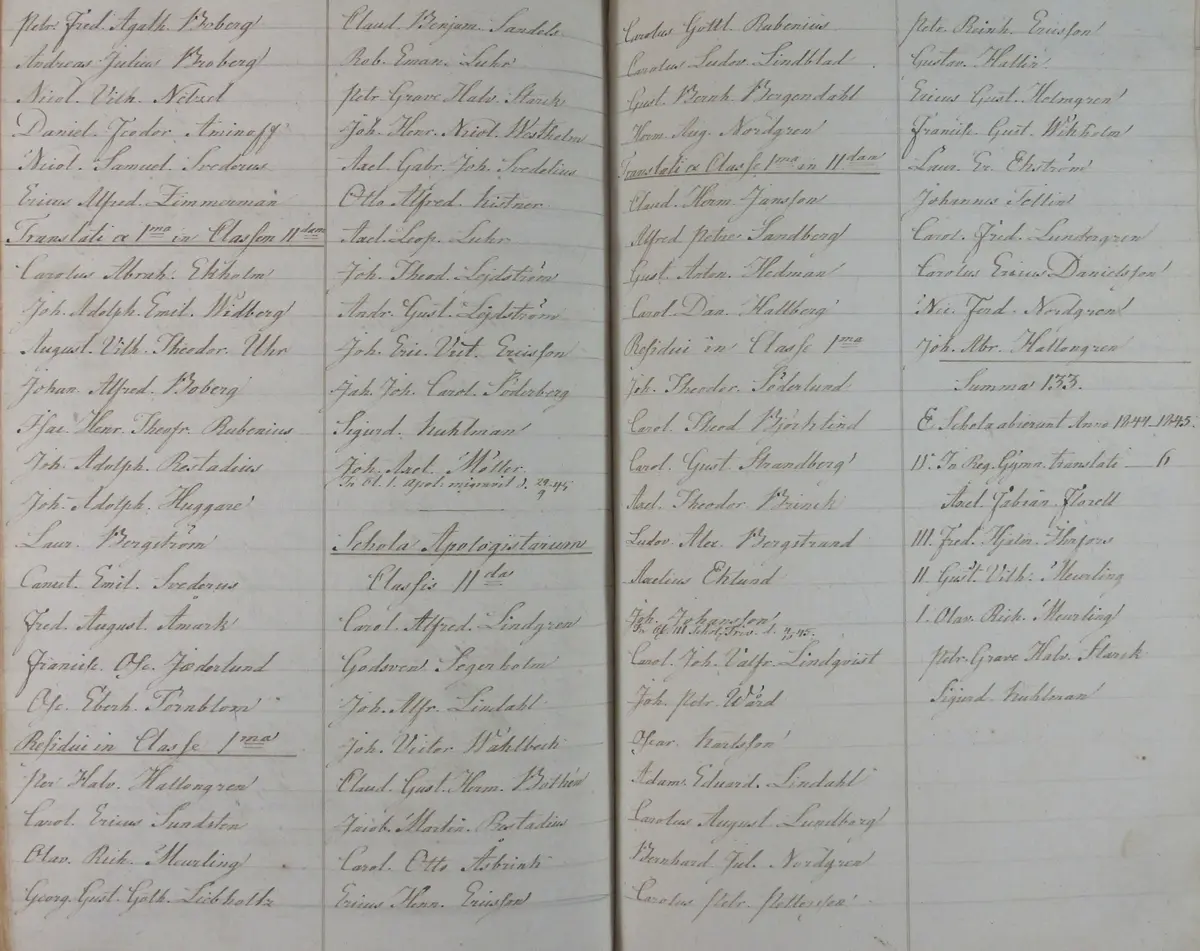 Petr. Fred. Agath. Boberg
Andreas Julius Broberg
Nicol. Vilh. Netzel
Daniel Teodor Aminoff
Nicol. Samuel Svederus
Ericus Alfred. Zimmerman
Translati e 1ma in Classem IIdam
Carolus Abrah. Ekholm
Joh. Adolph. Emil. Widberg
August. Vilh. Theodor. Uhr
Johan. Alfred. Boberg
Isac. Henr. Theofr. Rubenius
Joh. Adolph. Restadius
Joh. Adolph. Huggare
Laur. Bergström
Canut. Emil. Svederus
Fred. August. Åmark
Francisc. Osc. Söderlund
Osc. Eberh. Törnblom
Residui in Classe 1ma
Per Halv. Hallongren
Carol. Ericus Sundsten
Olav. Rich. Meurling
Georg. Gust. Göth. Liebholtz
Claud. Benjam. Sandels
Rob. Eman. Luhr
Petr. Grave Halv. Starck
Joh. Henr. Nicol. Westholm
Axel. Gabr. Joh. Svedelius
Otto Alfred. Kistner
Axel. Leop. Luhr
Joh. Theod. Lejdström
Andr. Gust. Lejdström
Joh. Eric. Vict. Ericsson
Joh. Carol. Söderberg
Sigurd. Kuhlman
Joh. Axel. Möller
In Cl. 1. Apol. migravit d. 29/9 45
Schola Apologistarum
Classis IIdas
Carol. Alfred. Lindgren
Godsven Segerholm
Joh. Alfr. Lindahl
Joh. Victor Wahlbeck
Claud. Gust. Herm. Bothén
Jacob. Martin. Restadius
Carol. Otto Åsbrink
Ericus Henr. Ericsson
Carolus Gottl. Rubenius
Carolus Ludov. Lindblad
Gust. Bernh. Bergendahl
Herm. Aug. Nordgren
Translati e Classe 1ma in IIdam
Claud. Herm. Jansson
Alfred Petrus Sandberg
Gust. Anton. Hedman
Carol. Dan. Hallberg
Residui in Classe 1ma
Joh. Theodor. Söderlund
Carol. Theod. Björklind
Carol. Gust. Strandberg
Axel. Theodor Brinck
Ludov. Alex. Bergstrand
Axelius Eklund
Joh. Johansson
In Cl. III Schol. Triv. d. 9/45.
Carol. Joh. Valfr. Lindqvist
Joh. Petr. Wård
Oscar. Karlsson
Adam. Eduard. Lindahl
Carolus August. Lundberg
Bernhard Jul. Nordgren
Carolus Petr. Pettersson
Petr. Reinh. Ericsson
Gustav. Hallin
Ericus Gust. Holmgren
Francisc. Gust. Wikholm
Laur. Er. Ekström
Johannes Sollin
Carol. Fred. Lundergren
Carolus Ericus Danielsson
Nic. Ferd. Nordgren
Joh. Abr. Hallongren
Summa 133.
E Schola abierunt Anno 1844-1845.
IV. In Reg. Gymn. translati — 6
Axel. Fabian. Florell
III. Fred. Hjalm. Thıfors
II. Gust. Vilh. Meurling
I. Olav. Rich. Meurling
Petr. Grave Halv. Starck
Sigurd Kuhlman